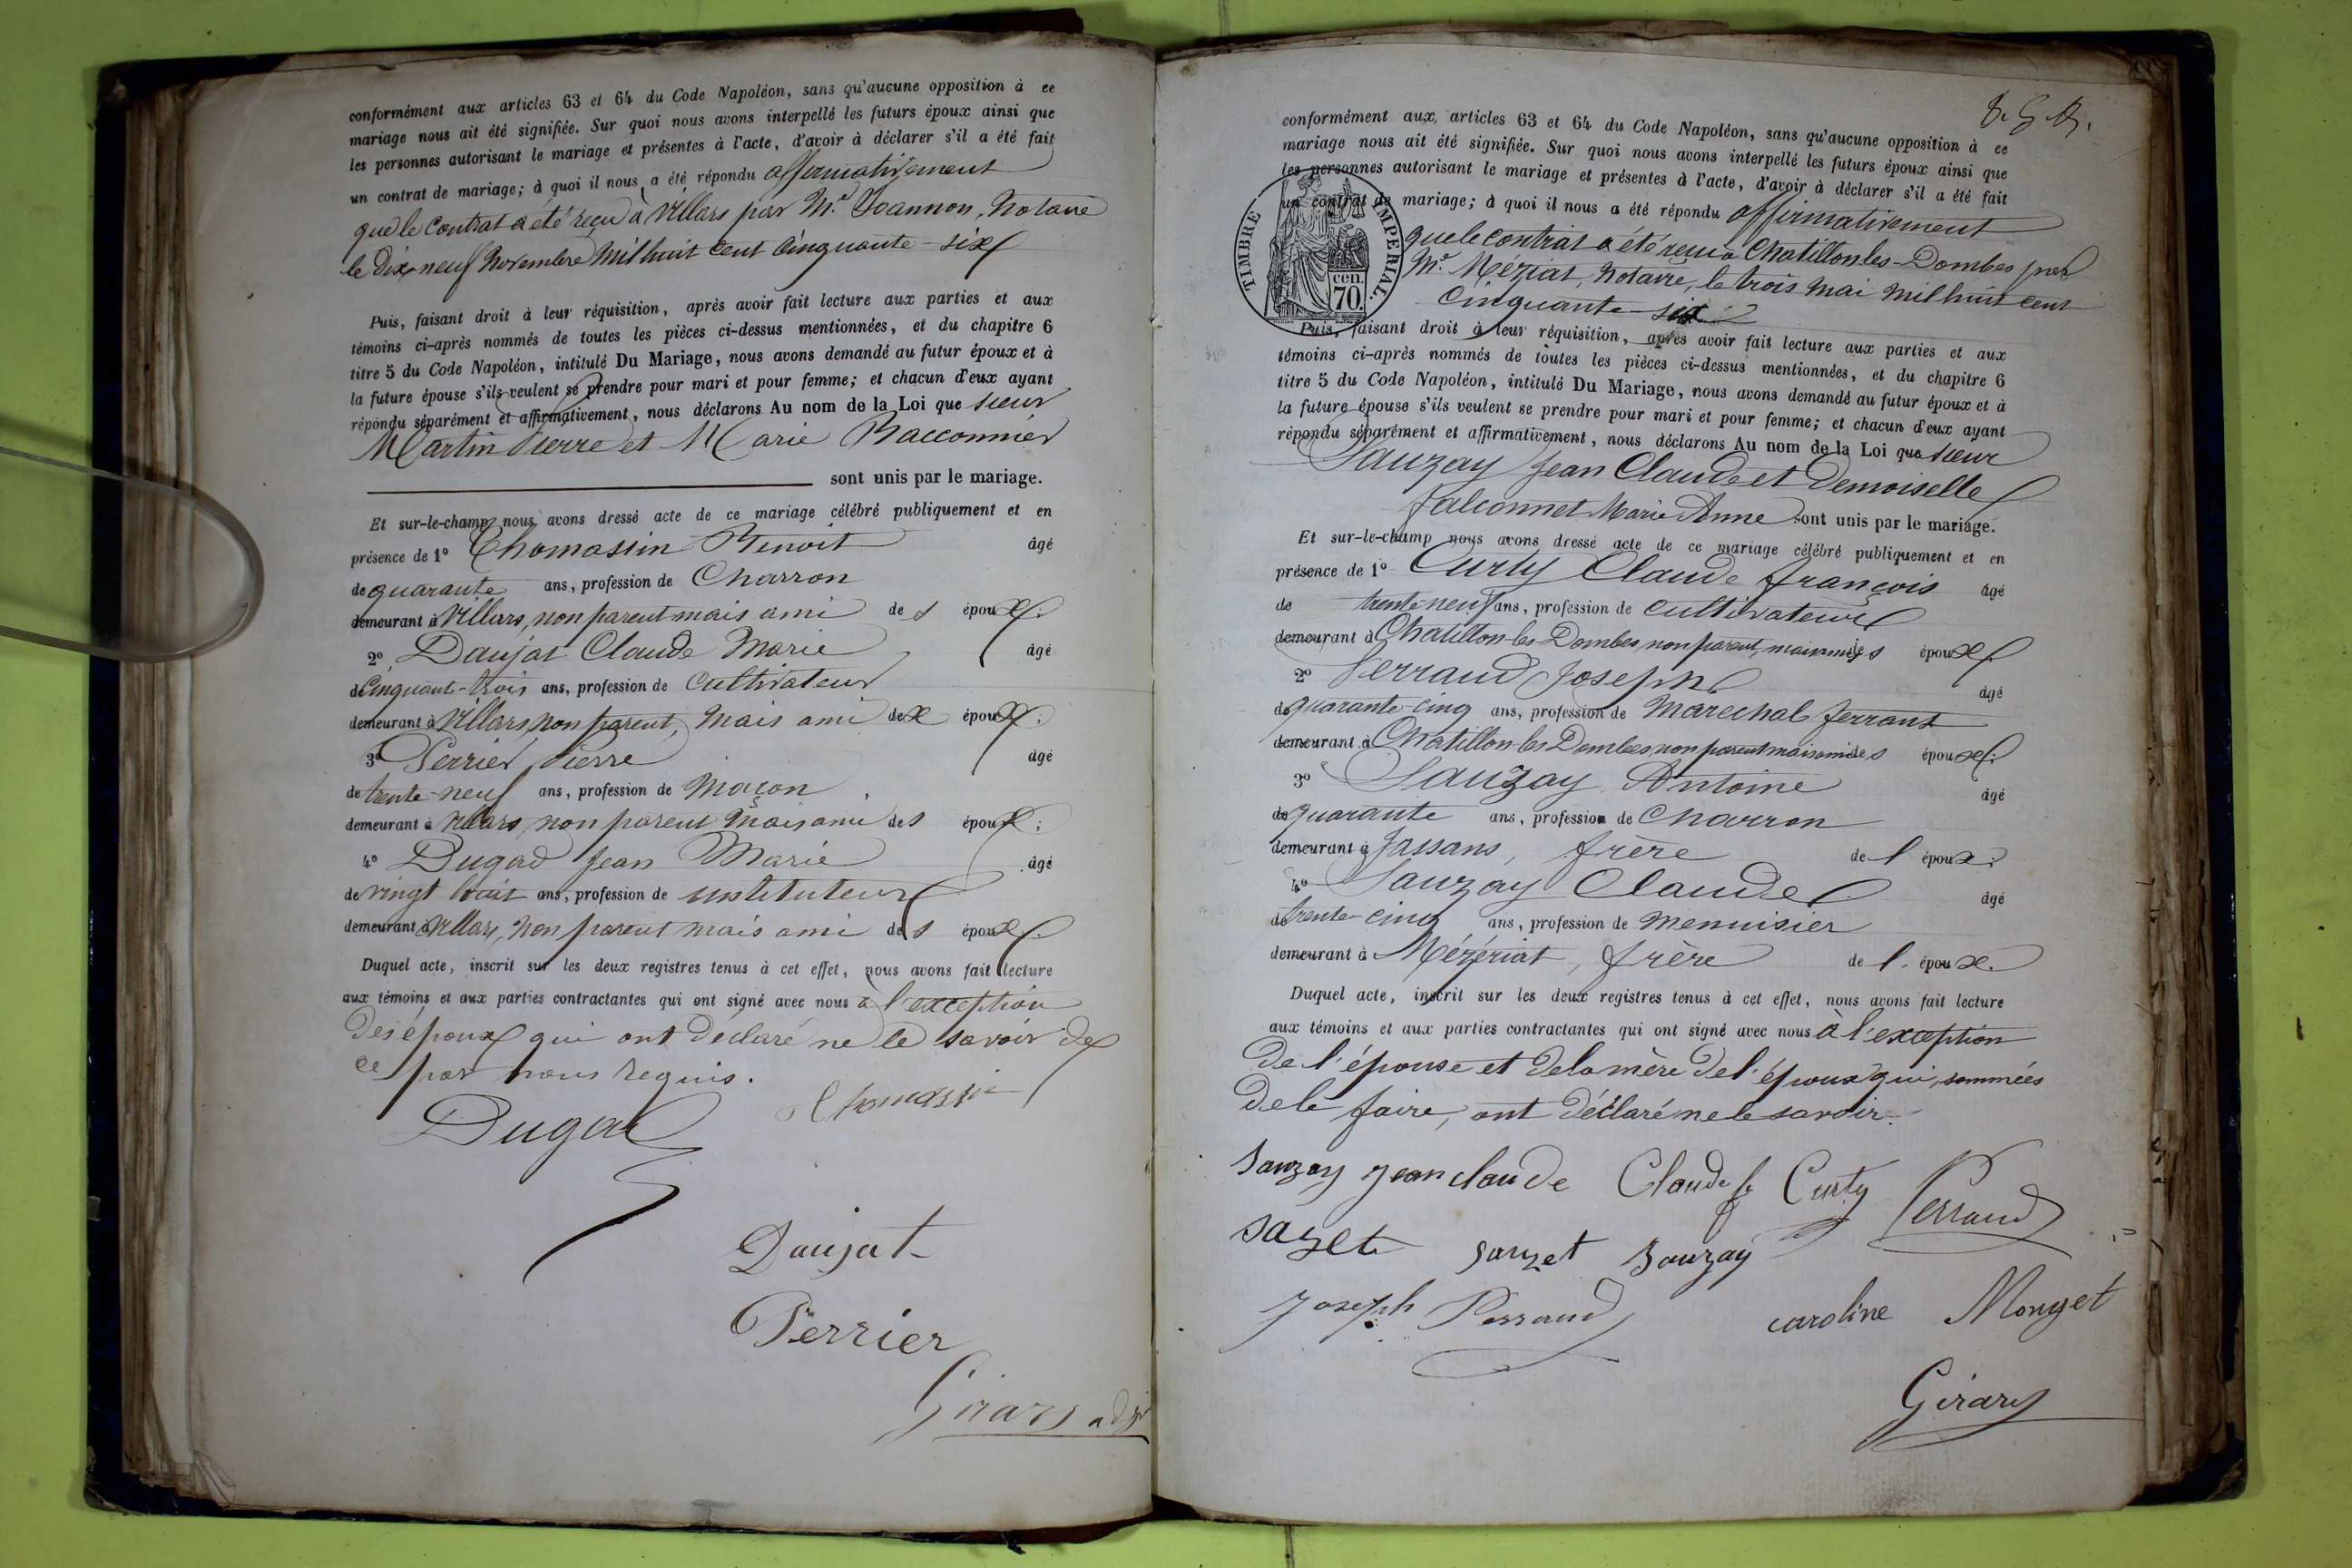 conformément aux articles 63 et 64 du Code Napoléon, sans qu'aucune opposition à ce
mariage nous ait été signifiée. Sur quoi nous avons interpellé les futurs époux ainsi que
les personnes autorisant le mariage et présentes à l'acte, d'avoir à déclarer s'il a été fait
un contrat de mariage; à quoi il nous a été répondu affirmativement
que le contrat a été reçu à Villars par Me Joannon, Notaire
le Dix-neuf Novembre Mil huit cent cinquante-six
Puis, faisant droit à leur réquisition, après avoir fait lecture aux parties et aux
témoins ci-après nommés de toutes les pièces ci-dessus mentionnées, et du chapitre 6
titre 5 du Code Napoléon, intitulé Du Mariage, nous avons demandé au futur époux et à
la future épouse s'ils veulent se prendre pour mari et pour femme; et chacun d'eux ayant
répondu séparément et affirmativement, nous déclarons Au nom de la Loi que sieur
Martin Pierre et Marie Racconnier
sont unis par le mariage.
Et sur-le-champ nous avons dressé acte de ce mariage célébré publiquement et en
présence de 1o Thomassin Benoit âgé
de quarante ans, profession de Charron
demeurant à Villars, non parent mais ami de s époux.
2o Daujat Claude Marie âgé
de Cinquant-trois ans, profession de Cultivateur
demeurant à Villars, non parent, mais ami de x époux.
3o Perrier Pierre âgé
de trente-neuf ans, profession de Maçon
demeurant à Villars, non parent Mais ami des époux;
4o Dugad Jean Marie âgé
de vingt huit ans, profession de instituteur
demeurant à Villars, non parent mais ami des époux.
Duquel acte, inscrit sur les deux registres tenus à cet effet, nous avons fait lecture
aux témoins et aux parties contractantes qui ont signé avec nous à l'exception
des époux qui ont déclaré ne le savoir de
ce par nous requis.
Thomassin
Dugad
Daujat
Perrier
Girard adjt
conformément aux articles 63 et 64 du Code Napoléon, sans qu'aucune opposition à ce
mariage nous ait été signifiée. Sur quoi nous avons interpellé les futurs époux ainsi que
les personnes autorisant le mariage et présentes à l'acte, d'avoir à déclarer s'il a été fait
un contrat de mariage; à quoi il nous a été répondu affirmativement
que le contrat a été reçu à Chatillon les-Dombes par
Me Méziat, Notaire, le trois Mai Mil huit cent
Cinquante-six
TIMBRE IMPERIAL.
cen. 70
Puis, faisant droit à leur réquisition, après avoir fait lecture aux parties et aux
témoins ci-après nommés de toutes les pièces ci-dessus mentionnées, et du chapitre 6
titre 5 du Code Napoléon, intitulé Du Mariage, nous avons demandé au futur époux et à
la future épouse s'ils veulent se prendre pour mari et pour femme; et chacun d'eux ayant
répondu séparément et affirmativement, nous déclarons Au nom de la Loi que sieur
Sauzay Jean Claude et Demoiselle
Falconnet Marie Anne sont unis par le mariage.
Et sur-le-champ nous avons dressé acte de ce mariage célébré publiquement et en
présence de 1o Curty Claude François âgé
de trente-neuf ans, profession de cultivateur
demeurant à Chatillon-les Dombes, non parent, mais ami des époux.
2o Perraud Joseph âgé
de quarante-cinq ans, profession de Marechal ferrant
demeurant à Chatillon-les Dombes non parent mais ami des époux.
3o Sauzay Antoine âgé
de quarante ans, profession de Charron
demeurant à Jassans, frère de l époux;
4o Sauzay Claude âgé
de trente-cinq ans, profession de Menuisier
demeurant à Mézériat, frère de l. époux.
Duquel acte, inscrit sur les deux registres tenus à cet effet, nous avons fait lecture
aux témoins et aux parties contractantes qui ont signé avec nous à l'exception
de l'épouse et de la mère de l'époux qui, sommées
de le faire, ont déclaré ne le savoir.
Sauzay jean claude Claude f. Curty Perraud
sazet sauzet Sauzay
Joseph Perraud caroline Monget
Girard